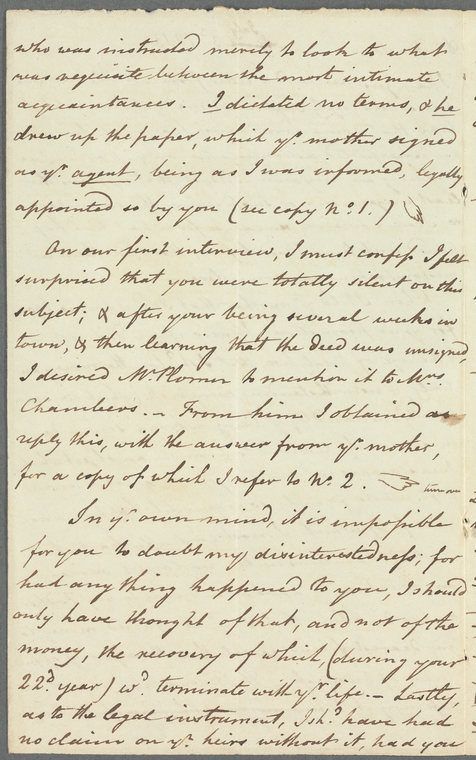 who was instructed merely to look to what
was requisite between the most intimate
acquaintances. I dictated no terms, & he
drew up the paper, which yr. mother signed
as yr. agent, being as I was informed, legally
appointed so by you (see copy No. 1.) ☞
On our first interview, I must confess I felt
surprised that you were totally silent on this
subject; & after your being several weeks in
town, & then learning that the deed was unsigned,
I desired Mr. Plomer to mention it to Mrs.
Chambers. – From him I obtained as
reply this, with the answer from yr. mother,
for a copy of which I refer to No. 2. ☞ turn over
In yr. own mind, it is impossible
for you to doubt my disinterestedness; for
had any thing happened to you, I should
only have thought of that, and not of the
money, the recovery of which, (during your
22d. year) wd. terminate with yr. life. – Lastly,
as to the legal instrument, I shd. have had
no claim on yr. heirs without it, had you